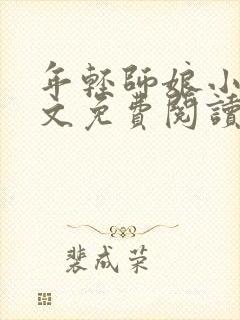 年轻师娘小
文免費閱讀
裴成荣